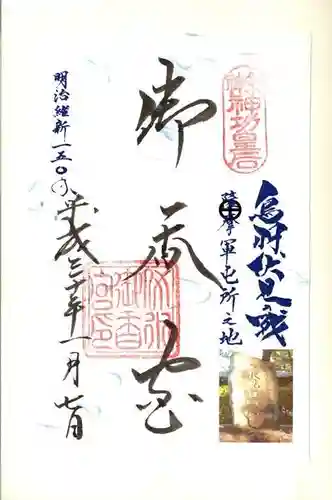 神功皇后
鳥羽、伏見の戦
薩摩軍屯所之地
御香宮
明治維新一五〇年
平成三十年一月七日